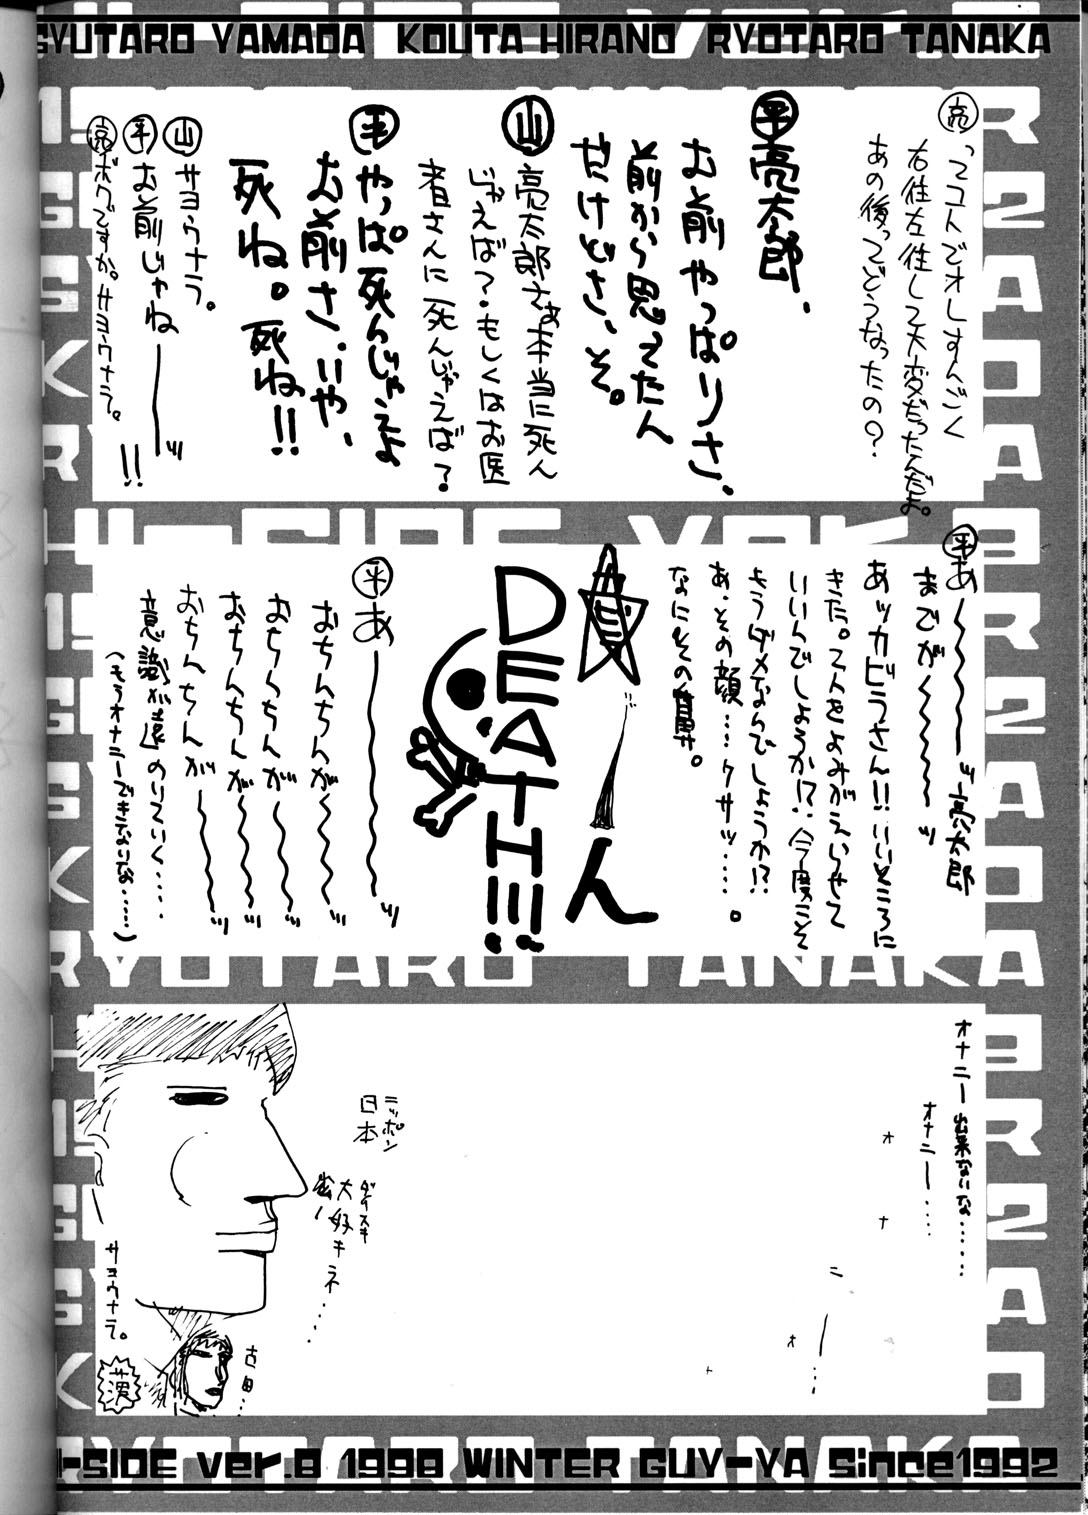 GYUTARO YAMADA KOUTA HIRANO RYOTARO TANAKA
亮 ってコトでオレすんごく
右往左往して大変だったんだよ。
あの後ってどうなったの?
平 亮太郎、
お前やっぱりさ、
前から思ってたん
だけどさ、そ。
山 亮太郎さぁ本当に死ん
じゃえば?もしくはお医
者さんに死んじゃえば?
平 やっぱ死んじゃえよ
お前さ、いや、
死ね。死ね!!
山 サヨウナラ。
平 お前じゃねーッ!!
亮 ボクですか。サヨウナラ。
平 あ〜〜〜〜ーッ亮太郎
までが〜〜〜〜ーッ
あッカビラさん!!いいところに
きた。てんをよみがえらせて
いいんでしょうか!?今度こそ
もうダメなんでしょうか!?
あ、その顔…クサッ…。
なにその
ん
DEATH!!!
平 あー〜〜〜〜ッ
おちんちんが〜〜〜〜ッ
おちんちんが〜〜〜〜ッ
おちんちんが〜〜〜〜ッ
おちんちんが〜〜〜〜ッ
意識が遠のいていく……
(もうオナニーできないな……)
オナニー出来ないな……
オナニー……
オ
ナ
ニ
ー…
ニッポン
日本
ダイスキ
大好キネ……
サヨウナラ。
古田…
HI-SIDE ver.8
RYOTARO TANAKA
HI-SIDE ver.8 1998 WINTER GUY-YA Since1992